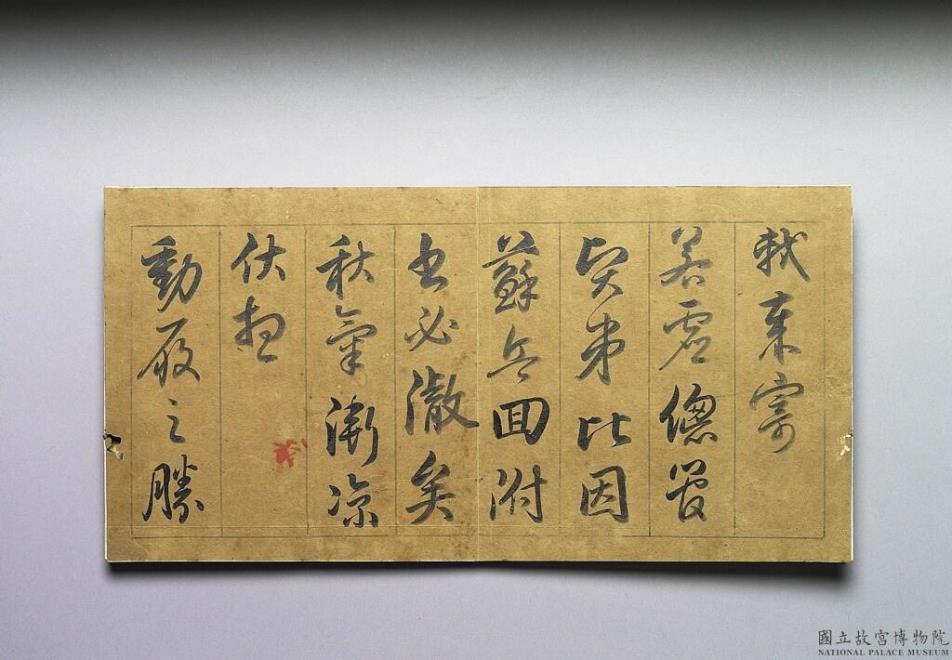 寄
若虛總管
賢弟比因
蘇兵回附
書必澈矣
秋氣漸涼
伏想
動履之勝
國立故宮博物院
NATIONAL PALACE MUSEUM